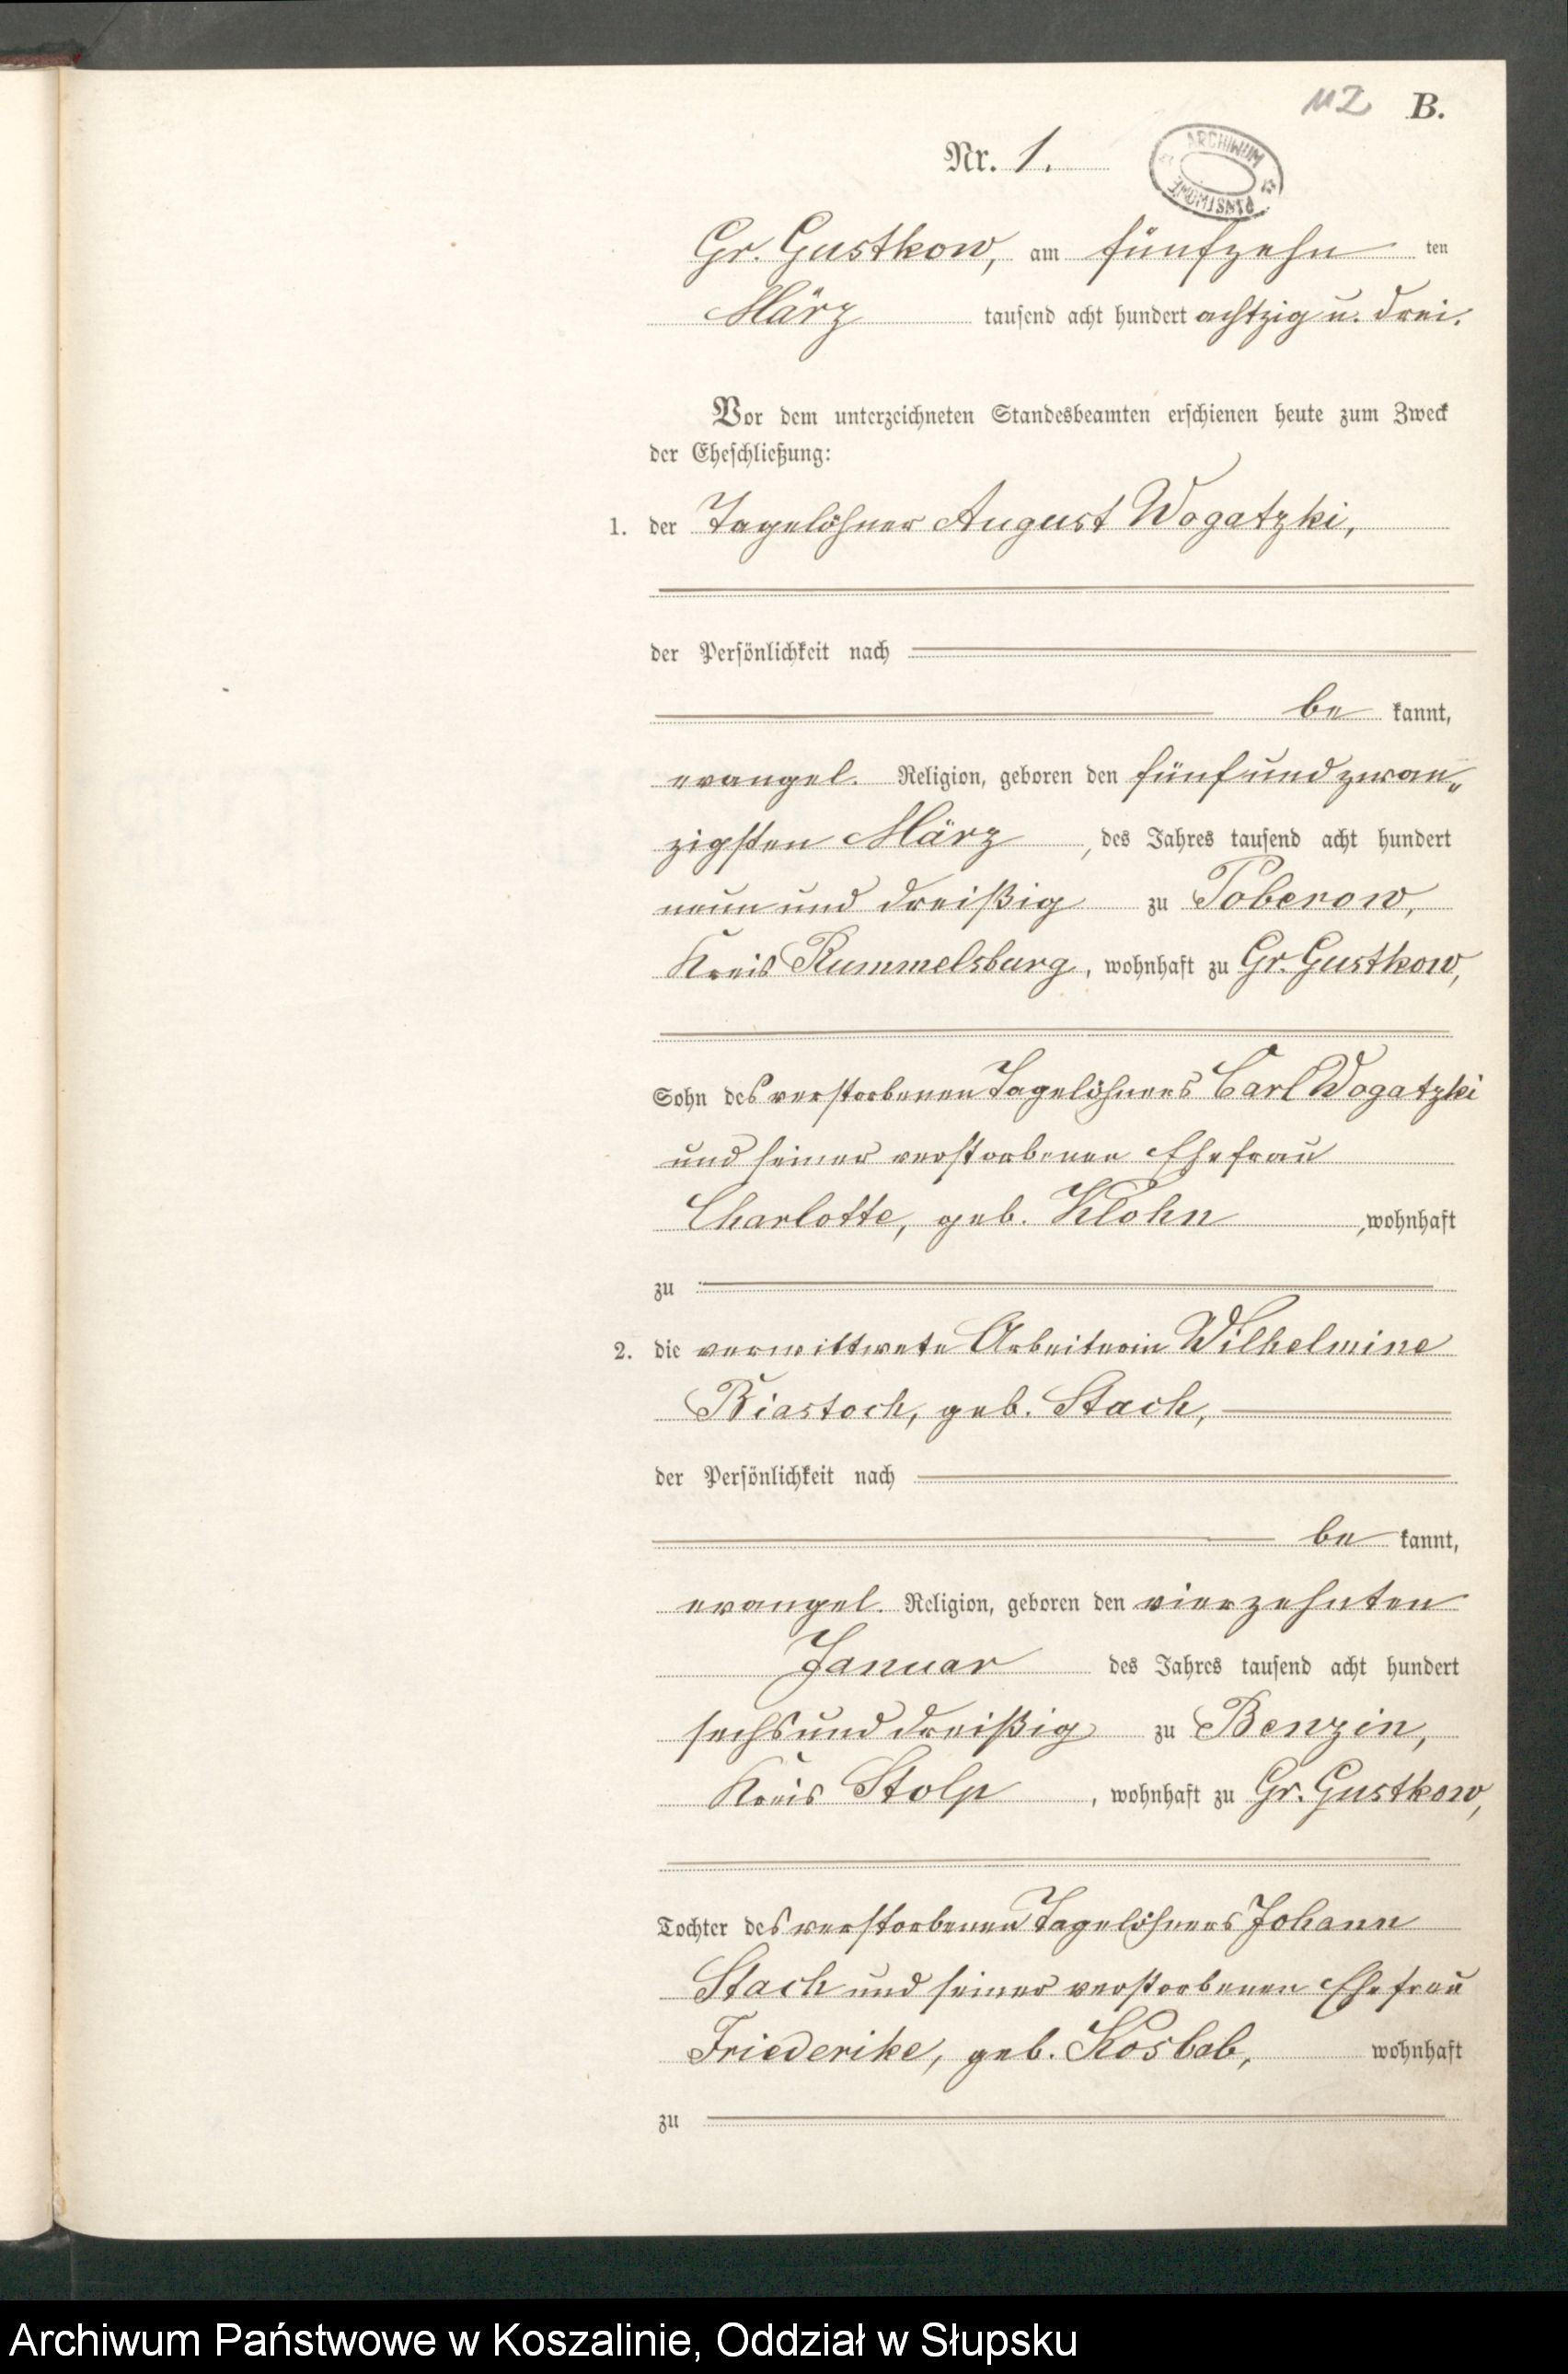 112 B.
Nr. 1.
ARCHIWUM PAŃSTWOWE
Gr. Gustkow, am fünfzehn ten
März tausend acht hundert achtzig u. drei.
Vor dem unterzeichneten Standesbeamten erschienen heute zum Zweck
der Eheschließung:
1. der Tagelöhner August Wogatzki,
der Persönlichkeit nach
be kannt,
evangel. Religion, geboren den fünf und zwan„
zigsten März, des Jahres tausend acht hundert
neun und dreißig zu Poberow,
Kreis Rummelsburg, wohnhaft zu Gr. Gustkow,
Sohn des verstorbenen Tagelöhners Carl Wogatzki
und seiner verstorbenen Ehefrau
Charlotte, geb. Klohn, wohnhaft
zu
2. die verwittwete Arbeiterin Wilhelmine
Biastoch, geb. Stach,
der Persönlichkeit nach
be kannt,
evangel. Religion, geboren den vierzehnten
Januar des Jahres tausend acht hundert
sechs und dreißig zu Benzin,
Kreis Stolp, wohnhaft zu Gr. Gustkow,
Tochter des verstorbenen Tagelöhners Johann
Stach und seiner verstorbenen Ehefrau
Friederike, geb. Kosbab, wohnhaft
zu
Archiwum Państwowe w Koszalinie, Oddział w Słupsku